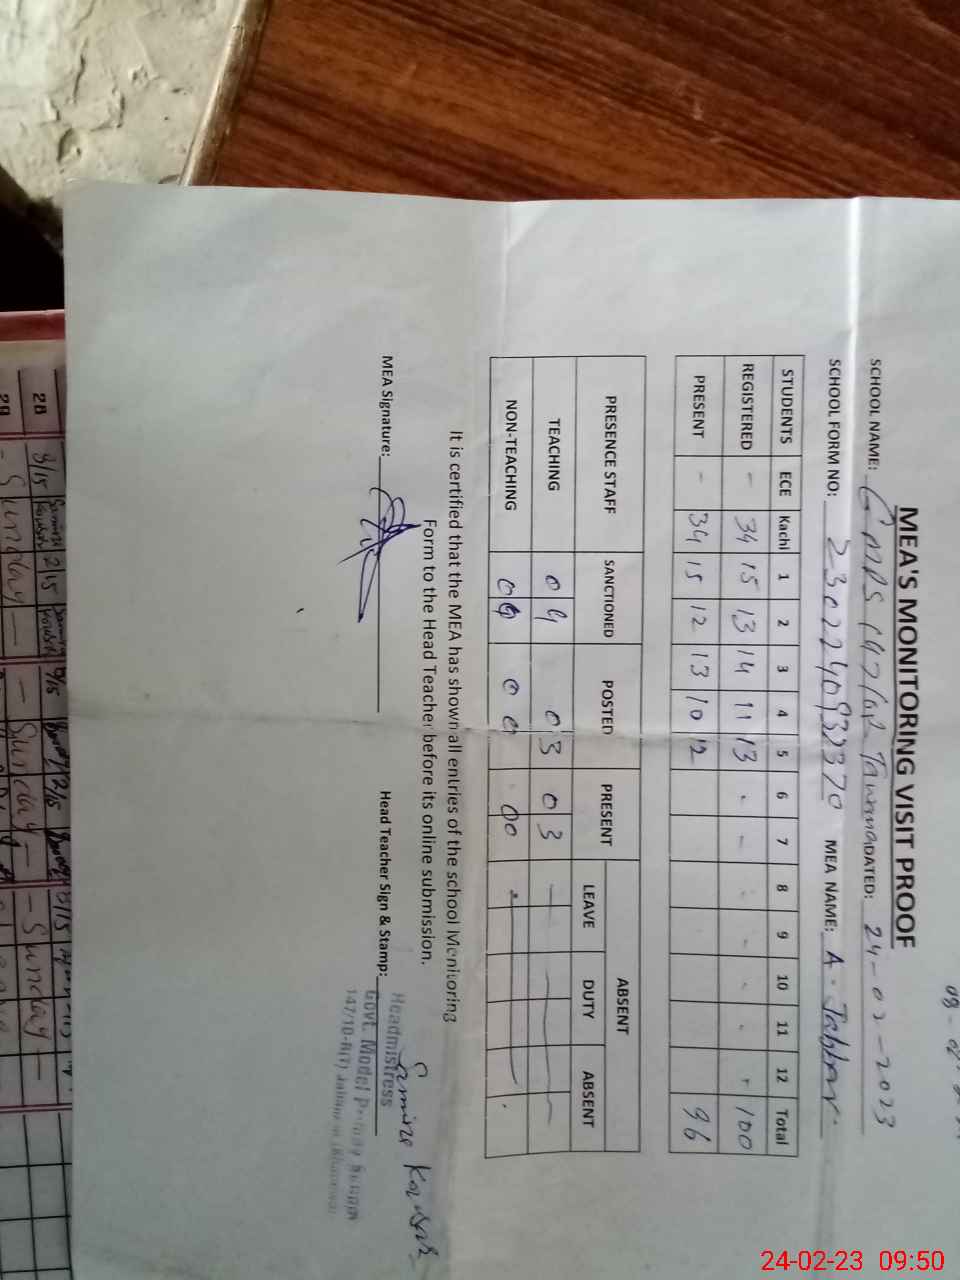 MEA'S MONITORING VISIT PROOF
SCHOOL NAME: GMPS 147/10R DATED: 24-02-2023
SCHOOL FORM NO: MEA NAME: A. Jabbar
STUDENTS ECE Kachi 1 2 3 4 5 6 7 8 9 10 11 12 Total
REGISTERED - 34 15 13 14 11 13 - - - - - - - 100
PRESENT - 34 15 12 13 10 12 96
PRESENCE STAFF SANCTIONED POSTED PRESENT ABSENT
LEAVE DUTY ABSENT
TEACHING 04 03 03
NON-TEACHING 00 00
It is certified that the MEA has shown all entries of the school Monitoring
Form to the Head Teacher before its online submission.
MEA Signature: Head Teacher Sign & Stamp:
Samina Kousar
Headmistress
Govt. Model Primary School
147/10-R(T) Jahanian (Khanewal)
28 3/15 2/15
29 - Sunday - - Sunday - - Sunday -
24-02-23 09:50